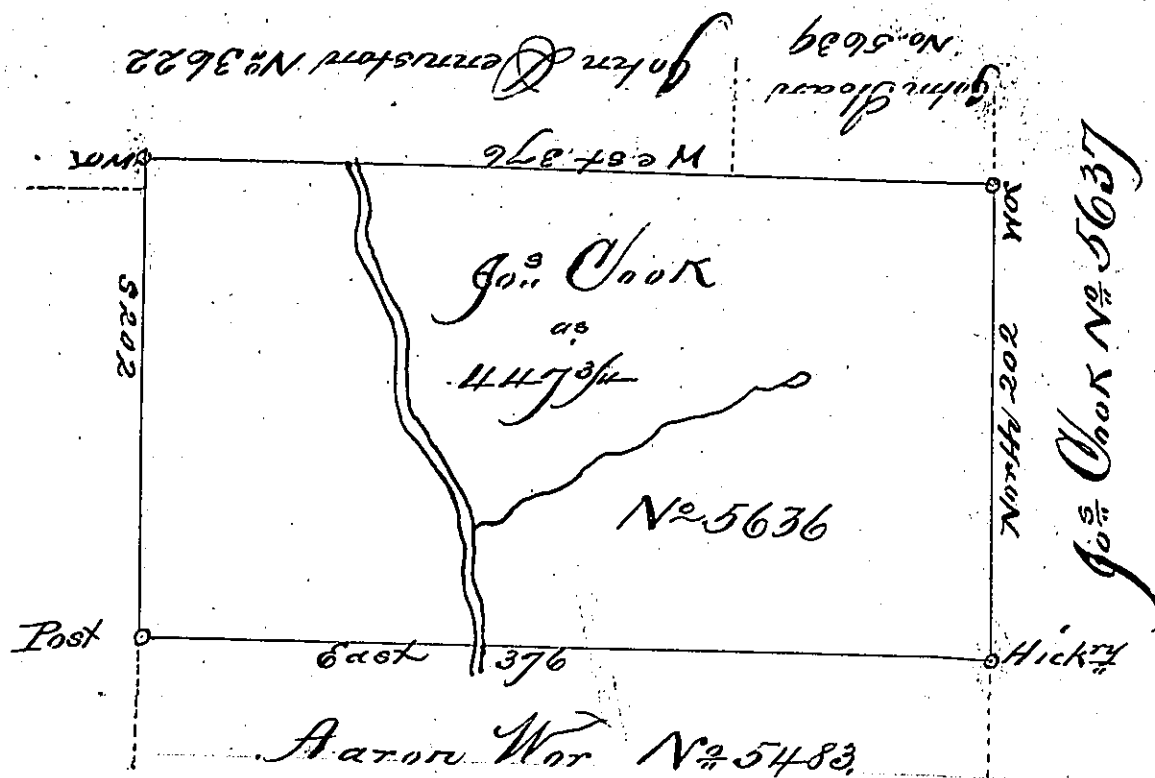 John Denniston Nº 3622
John Sloan
No. 5639
West 376
S 202
Jos Cook
as
447
Nº 5636
North 202
Jos Cook Nº 5637
Post
East 376
Hickry
Aaron Wor Nº 5483.